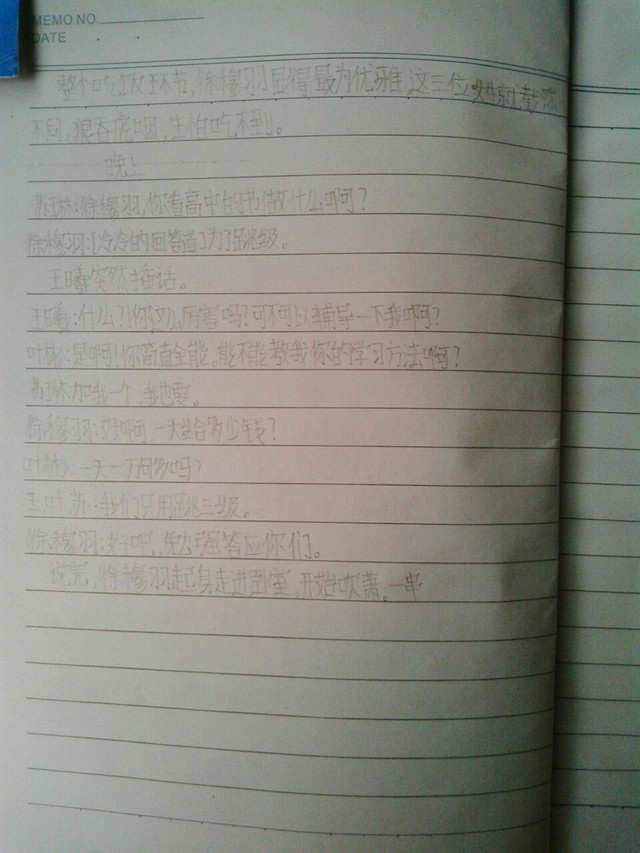 MEMO NO.
DATE
整个吃饭环节,徐穆羽显得最为优雅,这三位
不同,狼吞虎咽,生怕吃不到。
晚上
苏琳:徐穆羽,你看高中的书做什么啊?
徐穆羽:冷冷的回答道了为了跳级。
王曦突然插话。
王曦:什么?!你这么厉害吗?可不可以辅导一下我啊?
叶彬:是啊!你简直全能。能不能教我你的学习方法啊?
苏琳:加我一个,我也要。
徐穆羽:好啊,一天给多少钱?
叶彬:一天一万阿够吗?
王,叶,苏:我们只用跳三级。
徐穆羽:好吧,勉强答应你们。
说完,徐穆羽起身走进图室,开始吹萧。一半